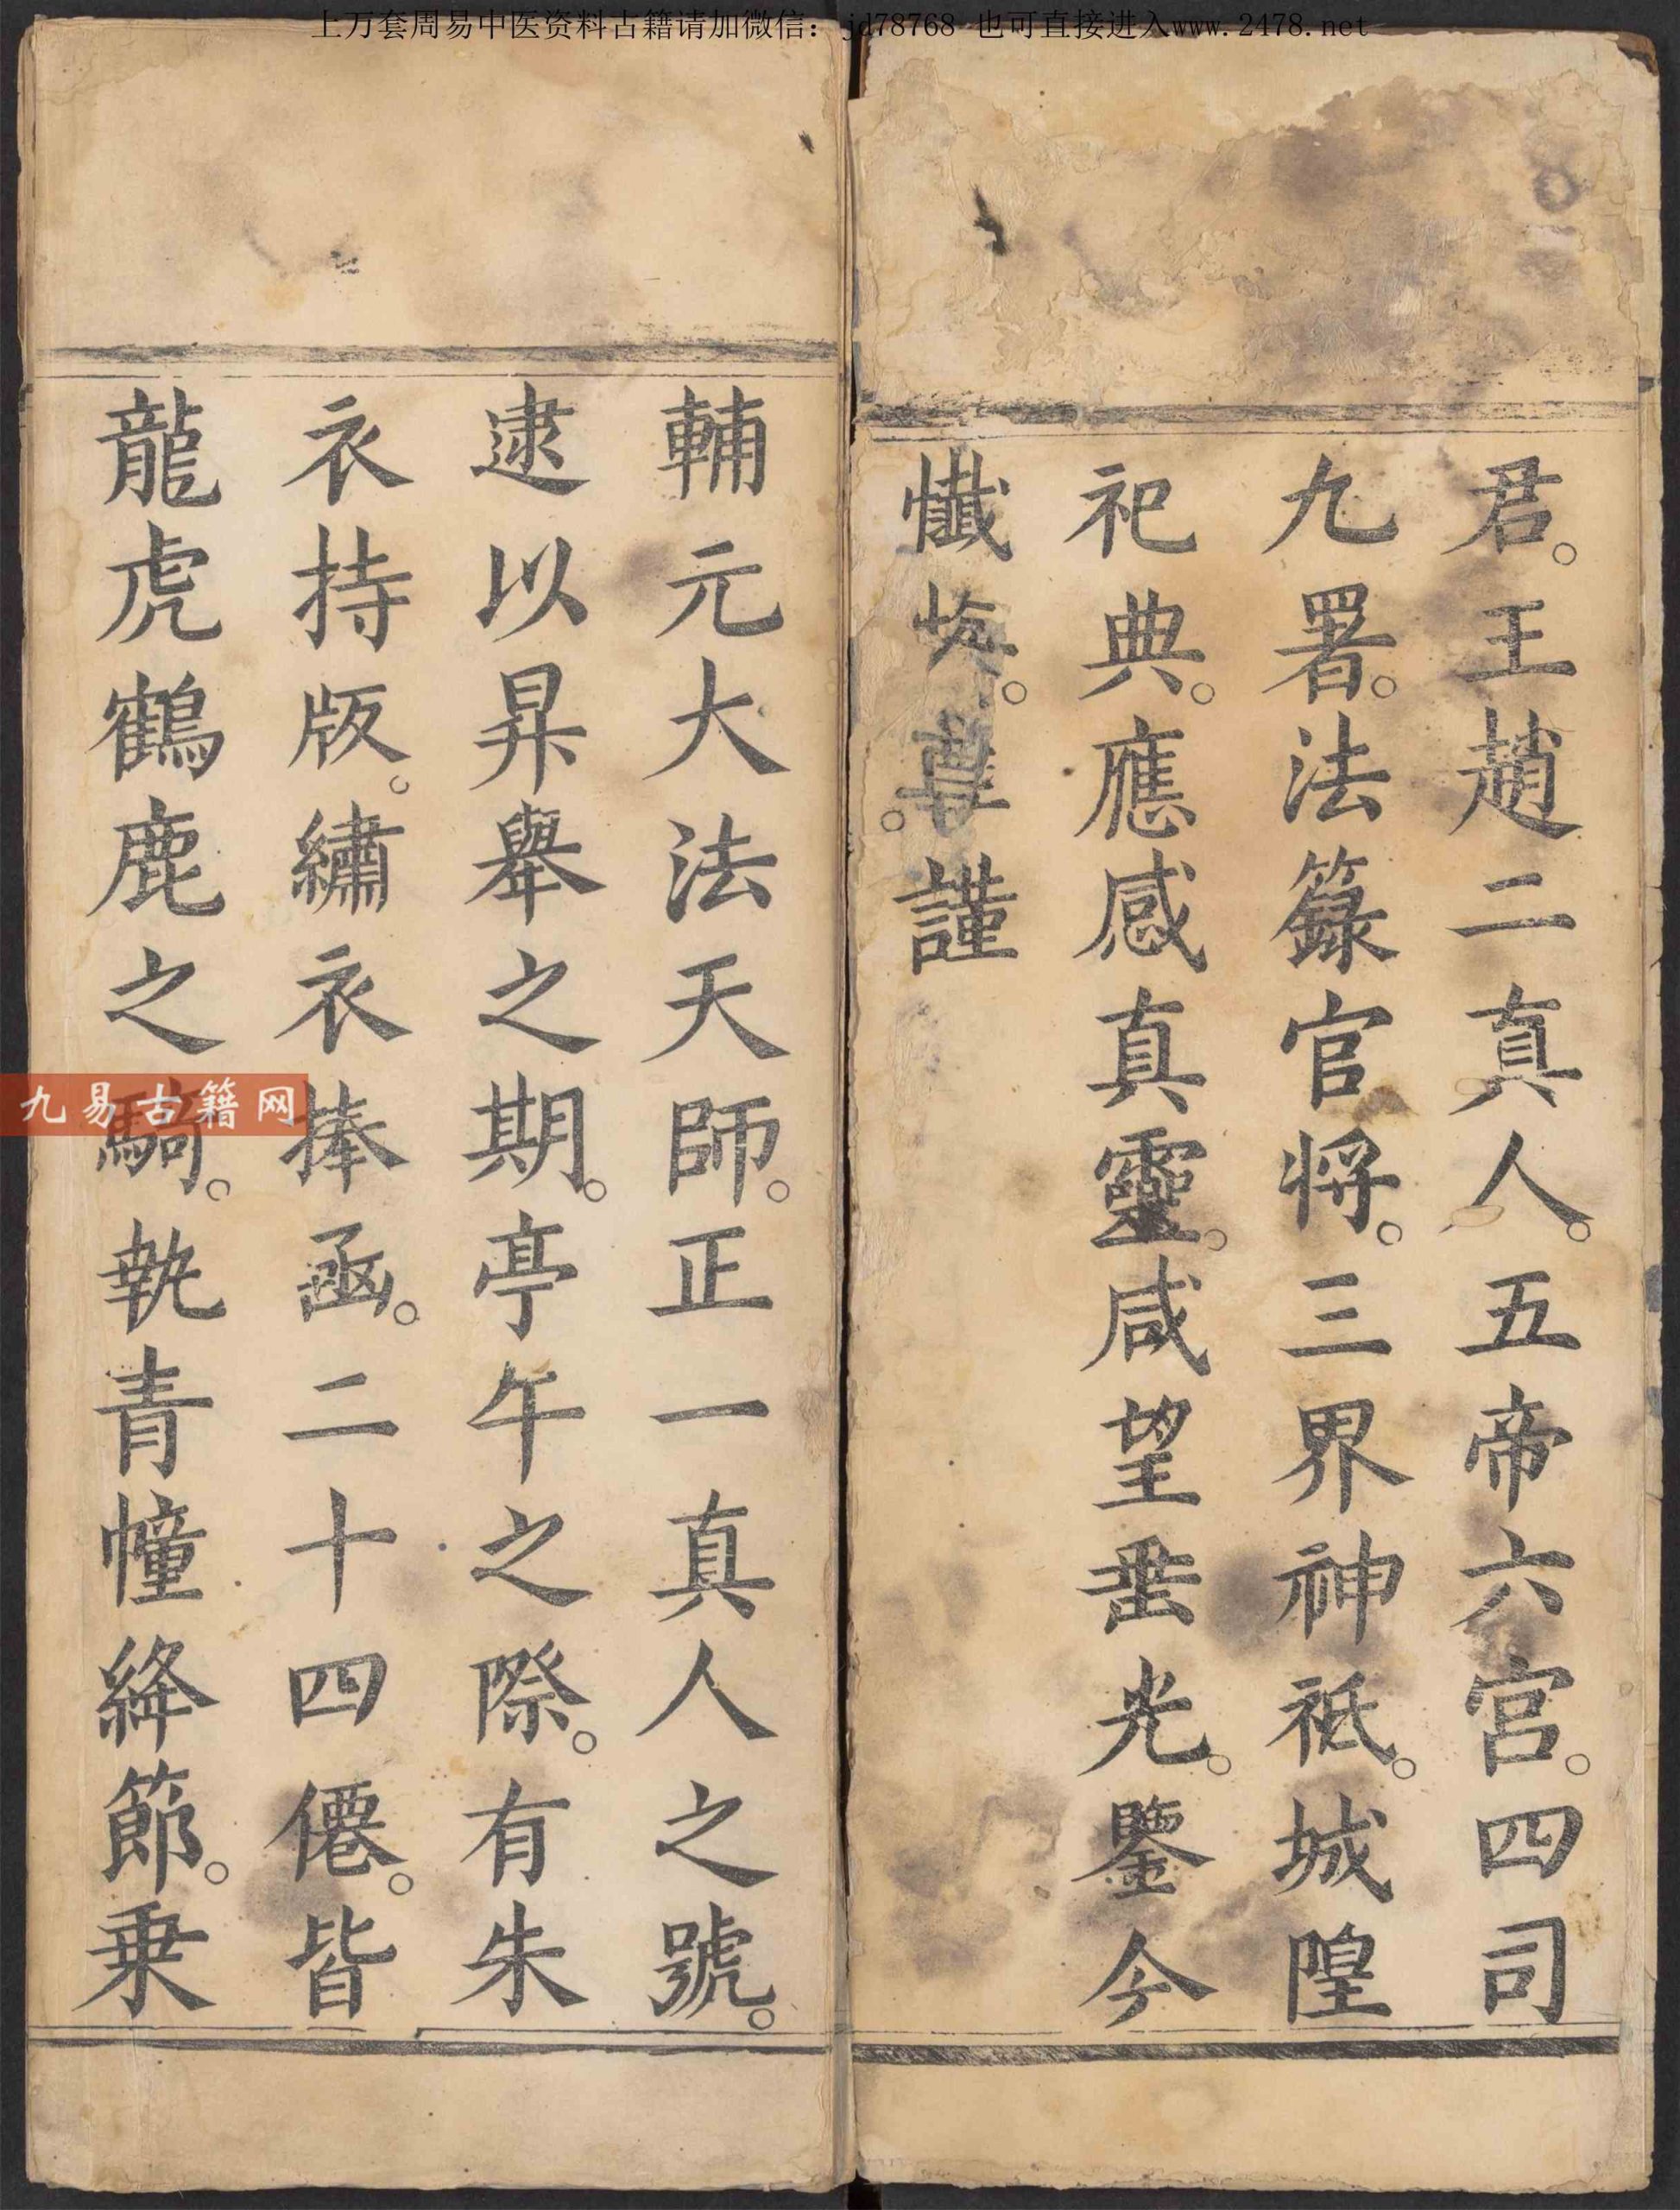 上万套周易中医资料古籍请加微信：jd78768 也可直接进入www.2478.net
君。王趙二真人。五帝六宮。四司
九署。法籙官将。三界神祇。城隍
祀典。應感真靈。咸望垂光。鑒今
懺悔。謹
輔元大法天師。正一真人之號。
逮以昇舉之期。亭午之際。有朱
衣持版。繡衣捧函。二十四僊。皆
龍虎鶴鹿之騎。執青幢絳節。乗
九易古籍网